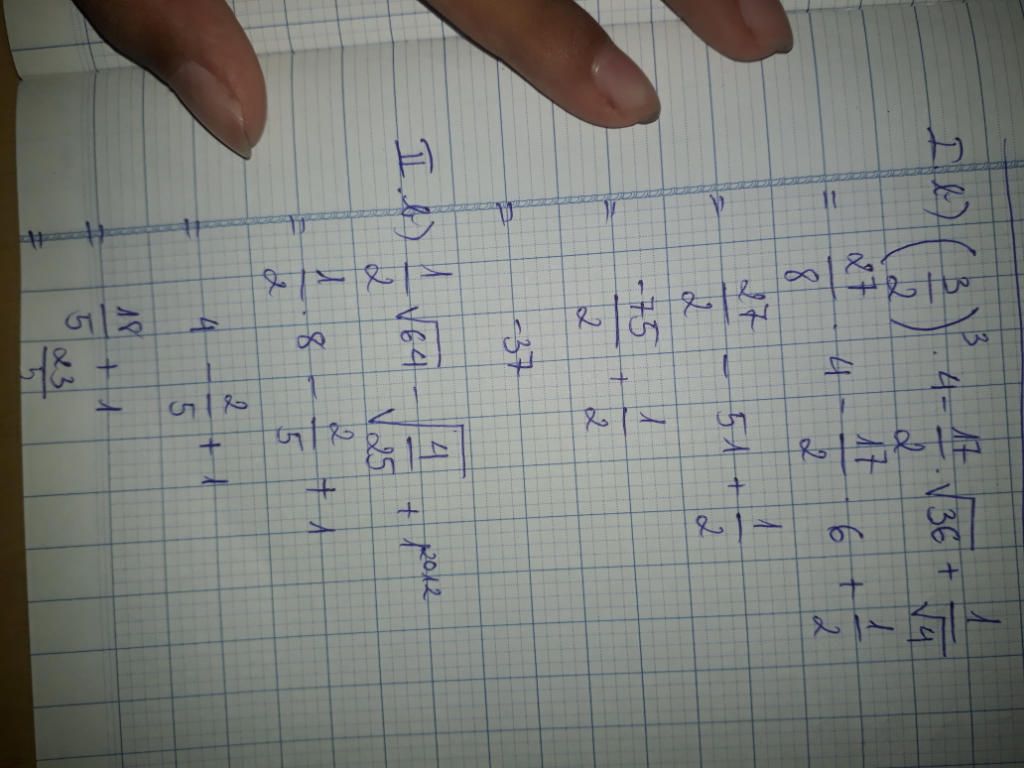 I.b) (3/2)³ . 4 - 17/2 . √36 + 1/√4
= 27/8 . 4 - 17/2 . 6 + 1/2
= 27/2 - 51 + 1/2
= -75/2 + 1/2
= -37
II.b) 1/2 √64 - √(4/25) + 1²⁰¹²
= 1/2 . 8 - 2/5 + 1
= 4 - 2/5 + 1
= 18/5 + 1
= 23/5